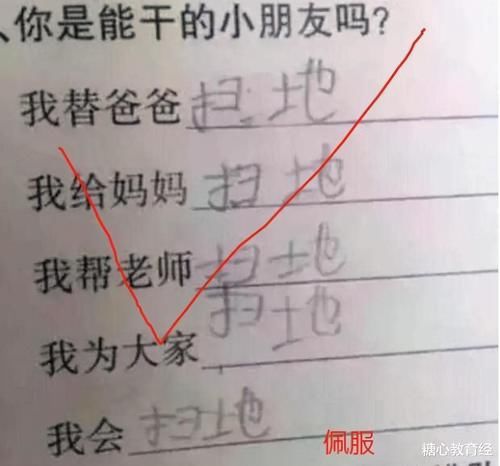 、你是能干的小朋友吗?
我替爸爸 扫地
我给妈妈 扫地
我帮老师 扫地
我为大家 扫地
我会 扫地
佩服
糖心教育经